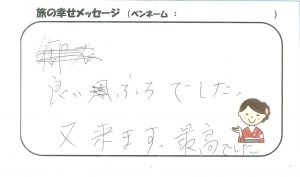 旅の幸せメッセージ (ペンネーム : )
良いふろでした。
又来ます。最高でした